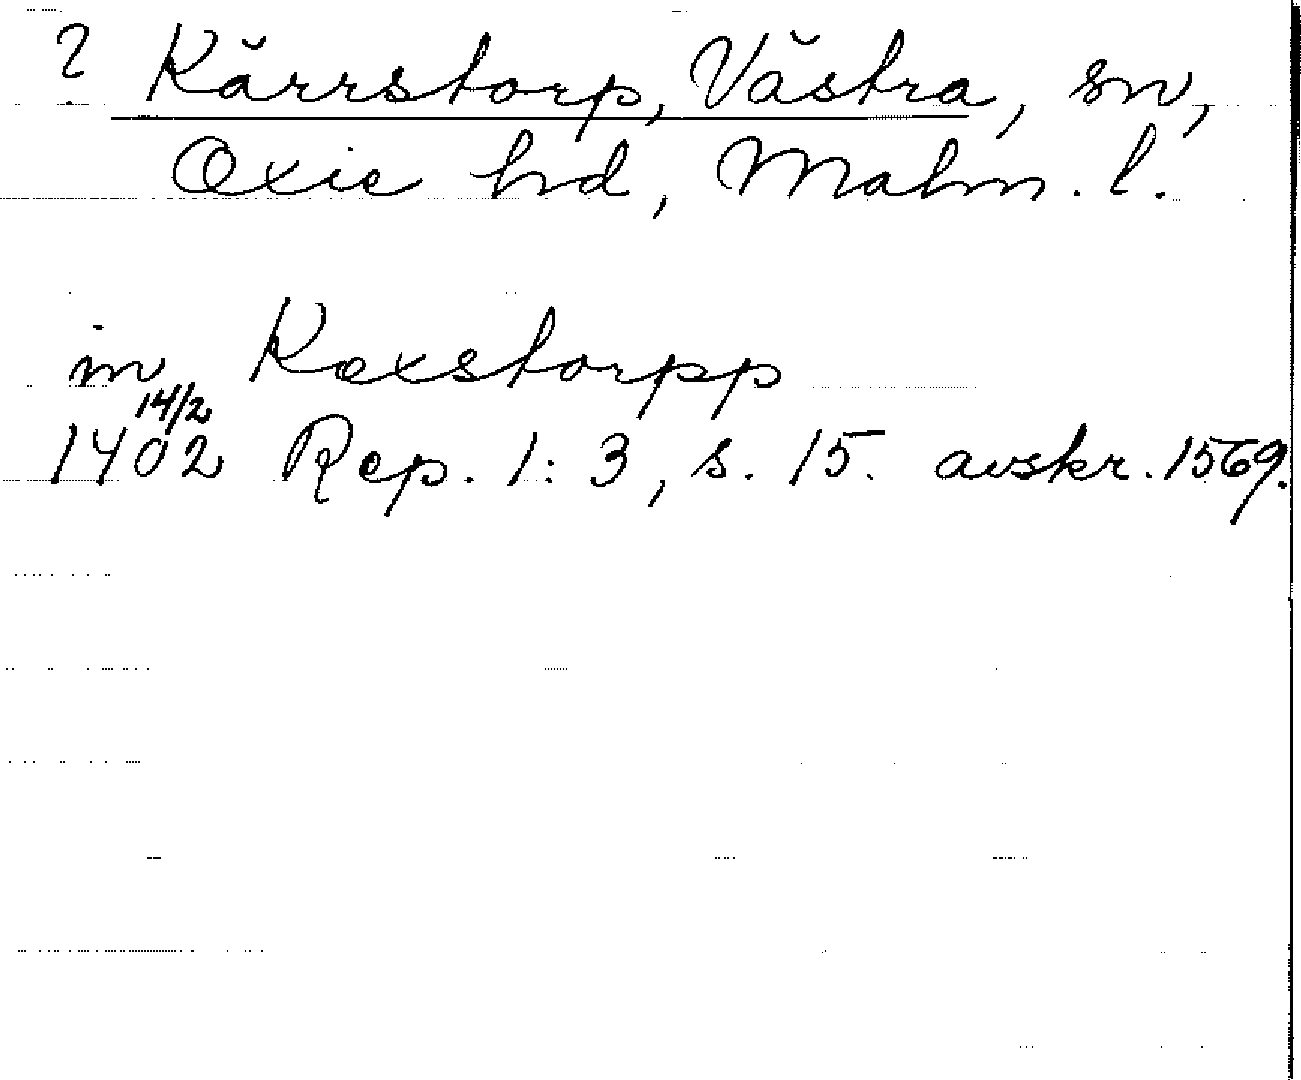 ? Kärrstorp, Västra, sn,
Oxie hd, Malm. l.
in Kexstorpp
14/2
1402 Rep. 1:3, s. 15. avskr. 1569.